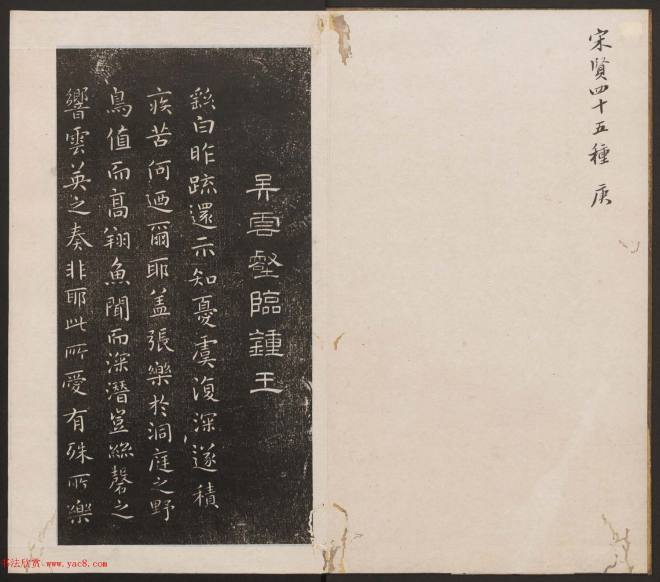 宋賢四十五種 庚
吳雲壑臨鍾王
繇白昨疏還示知憂虞復深遂積
疾苦何迺爾耶盖張樂於洞庭之野
鳥值而高翔魚聞而深潛豈絲磬之
響雲英之奏非耶此所愛有殊所樂
书法欣赏 www.yac8.com